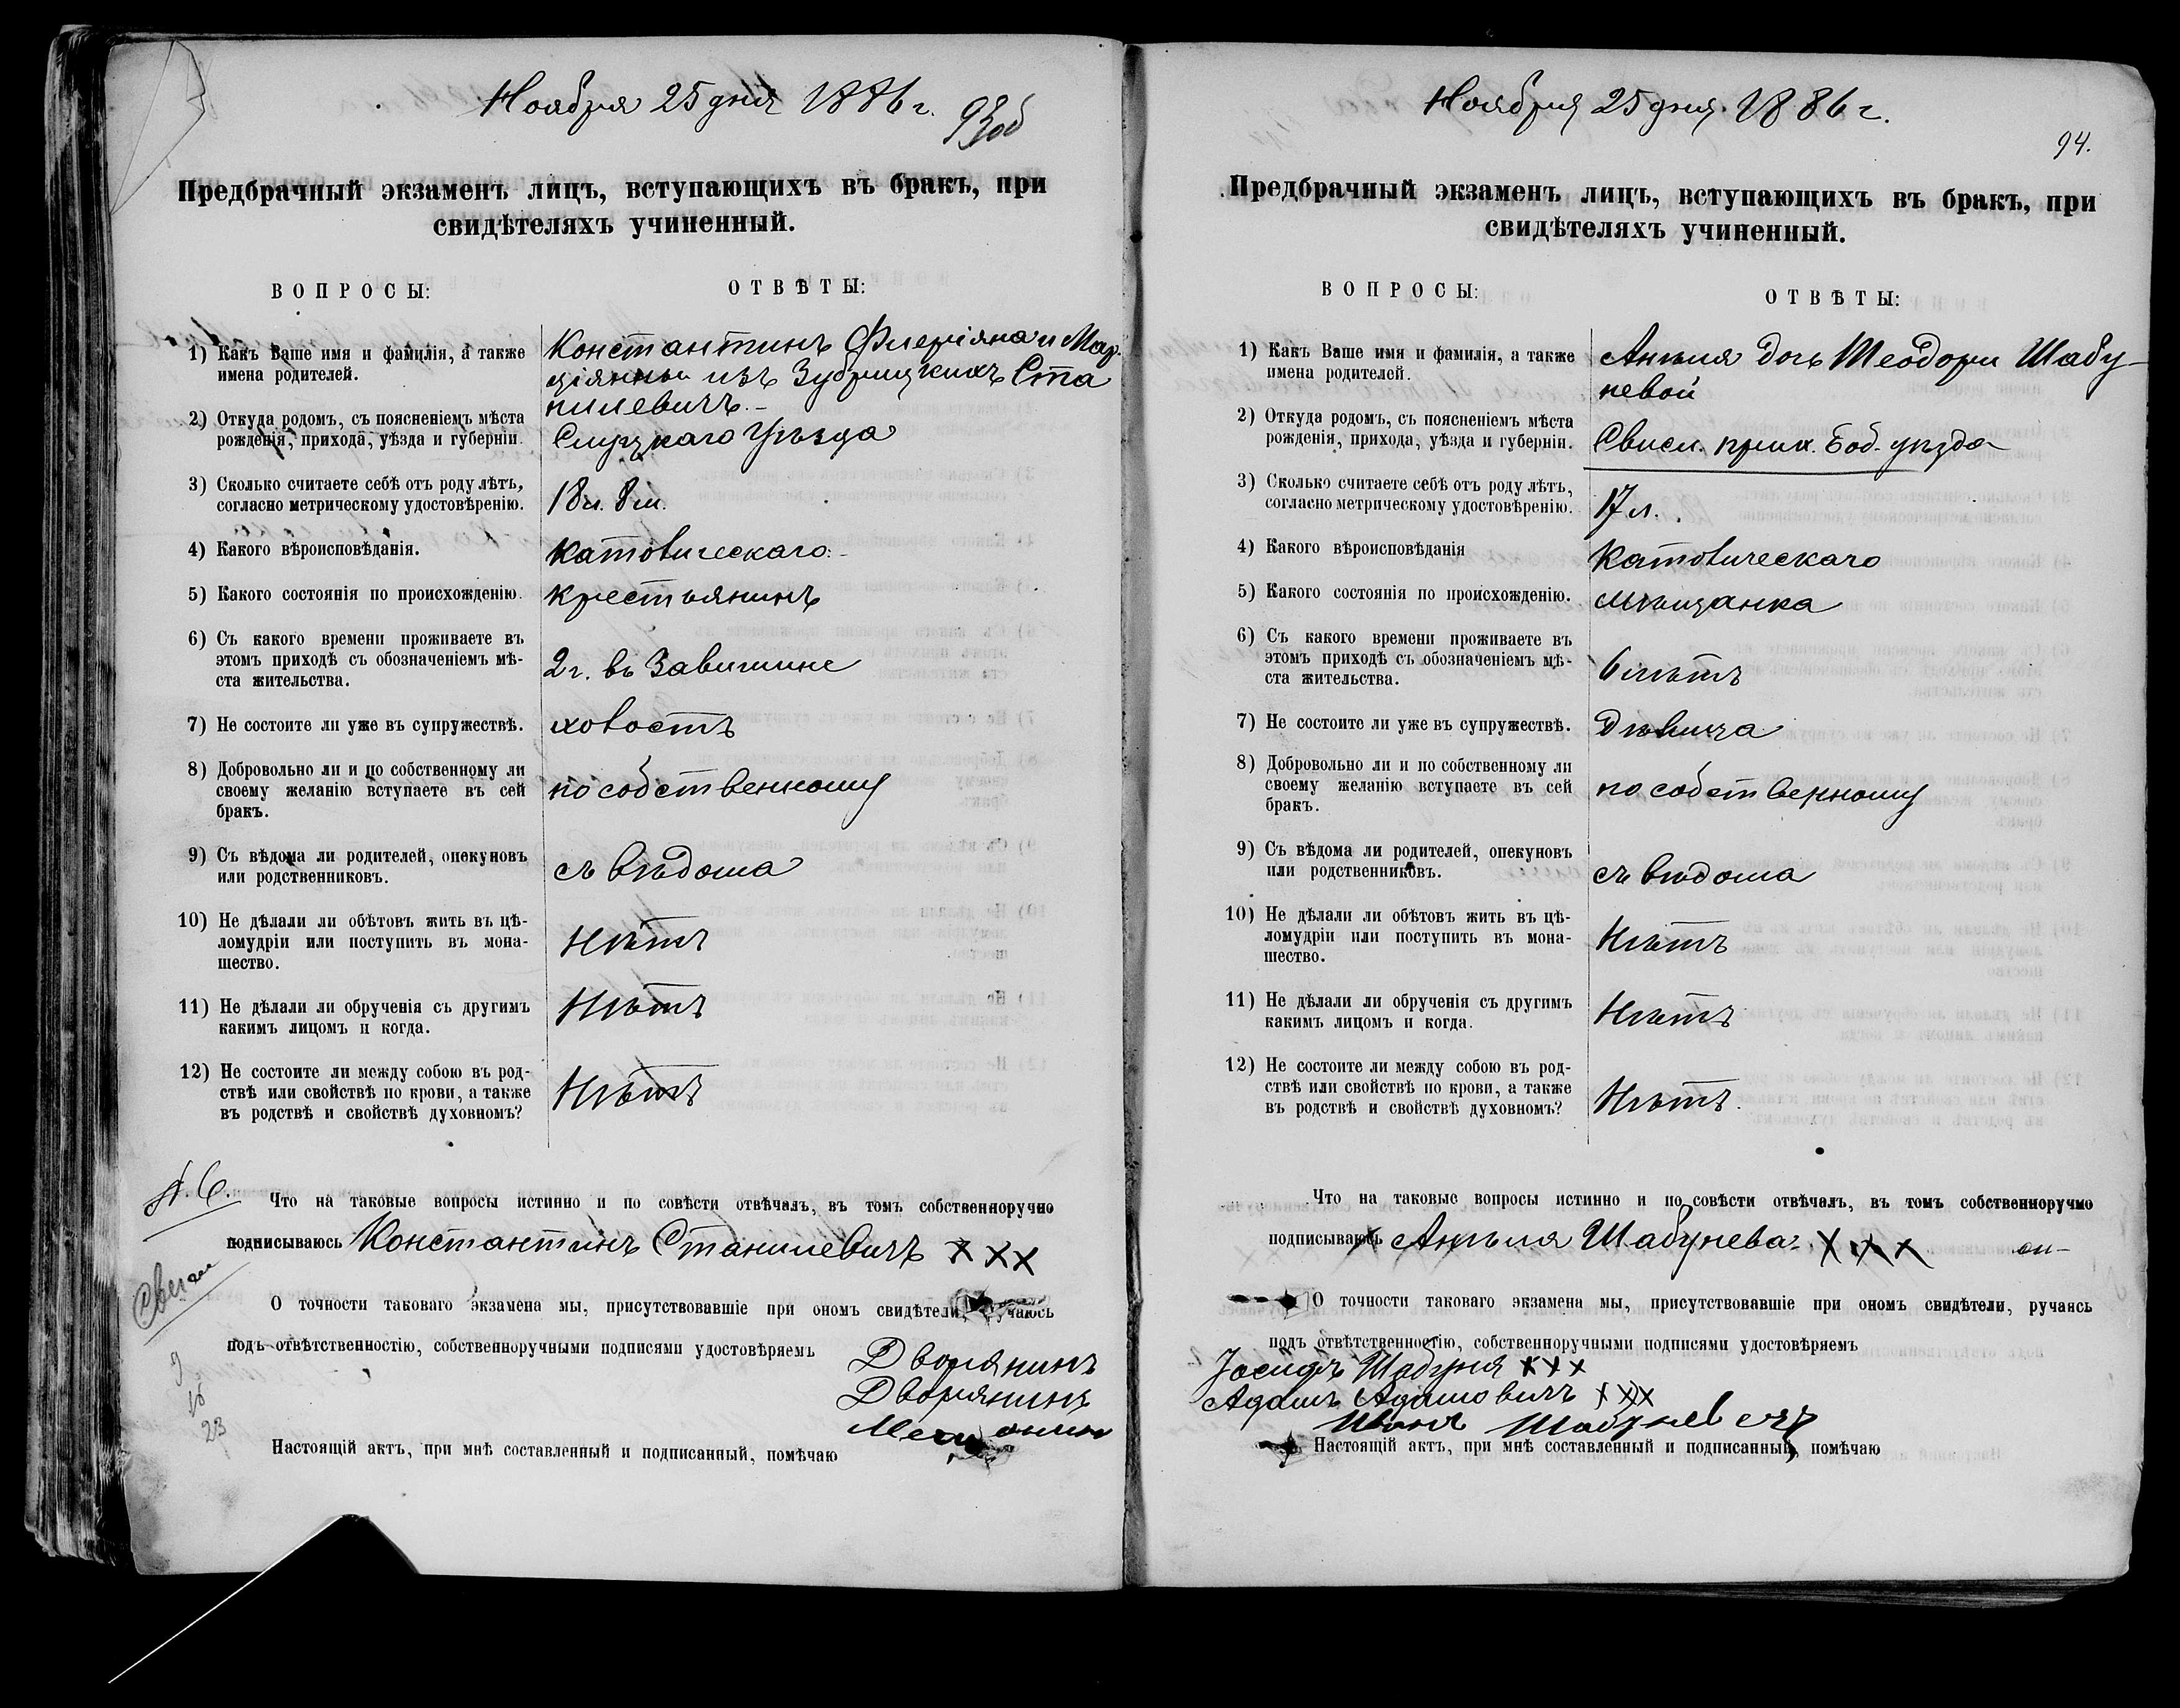 Ноября 25 дня 1886 г.
93об
Предбрачный экзаменъ лицъ, вступающихъ въ бракъ, при
свидѣтеляхъ учиненный.
ВОПРОСЫ:
ОТВѢТЫ:
1) Какъ Ваше имя и фамилія, а также
имена родителей.
Константинъ Флеріяна и Мар-
ціянны изъ Зубрицкихъ Ста
нилевичъ.
2) Откуда родомъ, съ поясненіемъ мѣста
рожденія, прихода, уѣзда и губерніи.
Слуцкаго Уѣзда
3) Сколько считаете себѣ отъ роду лѣтъ,
согласно метрическому удостовѣренію.
18 л. 8 м.
4) Какого вѣроисповѣданія.
Католическаго
5) Какого состоянія по происхожденію.
крестьянинъ
6) Съ какого времени проживаете въ
этомъ приходѣ съ обозначеніемъ мѣ-
ста жительства.
2 г. въ
7) Не состоите ли уже въ супружествѣ.
холостъ
8) Добровольно ли и по собственному ли
своему желанію вступаете въ сей
бракъ.
по собственному
9) Съ вѣдома ли родителей, опекуновъ
или родственниковъ.
съ вѣдома
10) Не дѣлали ли обѣтовъ жить въ цѣ-
ломудріи или поступить въ мона-
шество.
Нѣтъ
11) Не дѣлали ли обрученія съ другимъ
какимъ лицомъ и когда.
Нѣтъ
12) Не состоите ли между собою въ род-
ствѣ или свойствѣ по крови, а также
въ родствѣ и свойствѣ духовномъ?
Нѣтъ
Что на таковые вопросы истинно и по совѣсти отвѣчалъ, въ томъ собственноручно
подписываюсь Константинъ Станилевичъ XXX
О точности таковаго экзамена мы, присутствовавшіе при ономъ свидѣтели, ручаюсь
подъ отвѣтственностію, собственноручными подписями удостовѣряемъ
Дворянинъ
Дворянинъ
Настоящій актъ, при мнѣ составленный и подписанный, помѣчаю
9
16
23
Ноября 25 дня 1886 г.
94.
Предбрачный экзаменъ лицъ, вступающихъ въ бракъ, при
свидѣтеляхъ учиненный.
ВОПРОСЫ:
ОТВѢТЫ:
1) Какъ Ваше имя и фамилія, а также
имена родителей.
Анеля дочь Теодоры Шабу-
невой
2) Откуда родомъ, съ поясненіемъ мѣста
рожденія, прихода, уѣзда и губерніи.
Свисл. прих. Боб. уѣзда
3) Сколько считаете себѣ отъ роду лѣтъ,
согласно метрическому удостовѣренію.
17 л.
4) Какого вѣроисповѣданія
Католическаго
5) Какого состоянія по происхожденію.
мѣщанка
6) Съ какого времени проживаете въ
этомъ приходѣ съ обозначеніемъ мѣ-
ста жительства.
6 лѣтъ
7) Не состоите ли уже въ супружествѣ.
Дѣвица
8) Добровольно ли и по собственному ли
своему желанію вступаете въ сей
бракъ.
по собственному
9) Съ вѣдома ли родителей, опекуновъ
или родственниковъ.
съ вѣдома
10) Не дѣлали ли обѣтовъ жить въ цѣ-
ломудріи или поступить въ мона-
шество.
Нѣтъ
11) Не дѣлали ли обрученія съ другимъ
какимъ лицомъ и когда.
Нѣтъ
12) Не состоите ли между собою въ род-
ствѣ или свойствѣ по крови, а также
въ родствѣ и свойствѣ духовномъ?
Нѣтъ.
Что на таковые вопросы истинно и по совѣсти отвѣчалъ, въ томъ собственноручно
подписываюсь Анеля Шабунева XXX
О точности таковаго экзамена мы, присутствовавшіе при ономъ свидѣтели, ручаясь
подъ отвѣтственностію, собственноручными подписями удостовѣряемъ
Іосифъ Шабуня XXX
Адамъ Адамовичъ XXX
Иванъ Шабуневичъ
Настоящій актъ, при мнѣ составленный и подписанный, помѣчаю